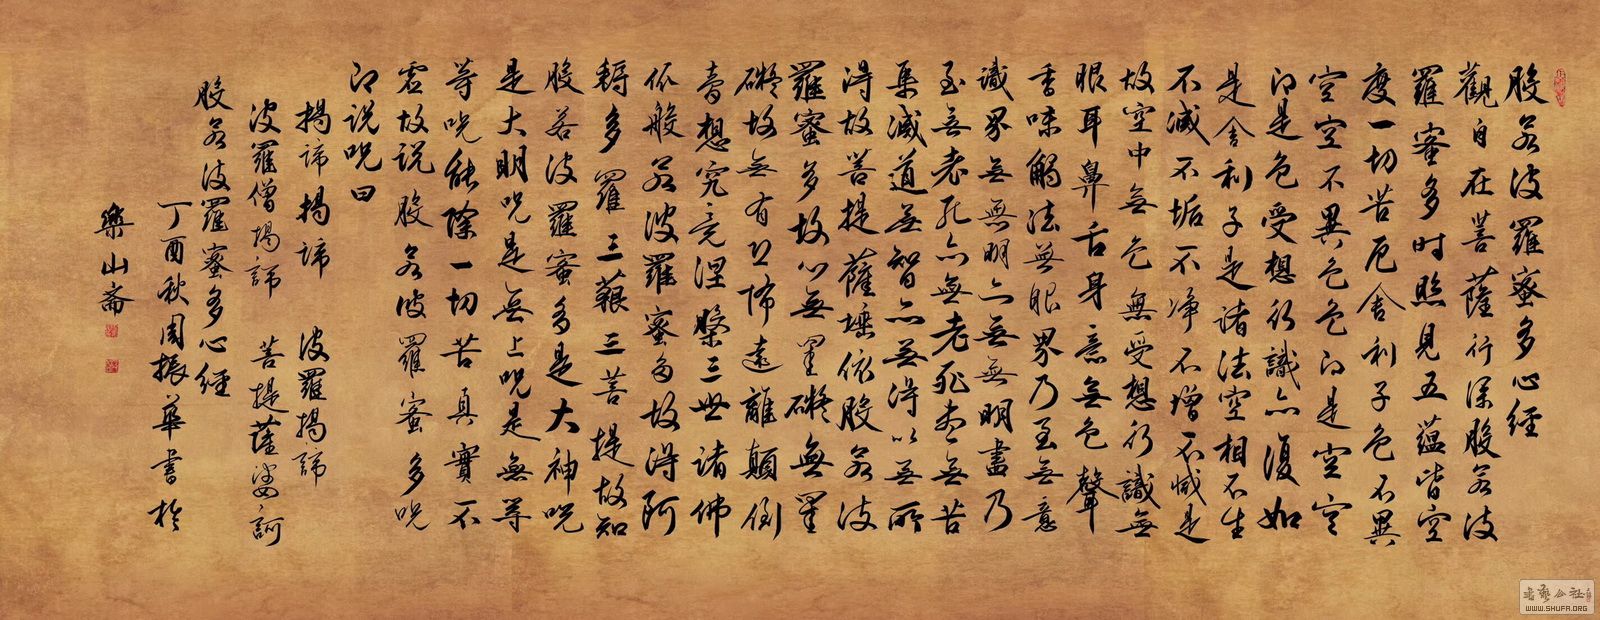 般若波羅蜜多心經
觀自在菩薩行深般若波
羅蜜多時照見五蘊皆空
度一切苦厄舍利子色不異
空空不異色色即是空空
即是色受想行識亦復如
是舍利子是諸法空相不生
不滅不垢不净不增不減是
故空中無色無受想行識無
眼耳鼻舌身意無色聲
香味觸法無眼界乃至無意
識界無無明亦無無明盡乃
至無老死亦無老死盡無苦
集滅道無智亦無得以無所
得故菩提薩埵依般若波
羅蜜多故心無罣礙無罣
礙故無有恐怖遠離顛倒
夢想究竟涅槃三世諸佛
依般若波羅蜜多故得阿
耨多羅三藐三菩提故知
般若波羅蜜多是大神咒
是大明咒是無上咒是無等
等咒能除一切苦真實不
虛故說般若波羅蜜多咒
即說咒曰
揭諦揭諦 波羅揭諦
波羅僧揭諦 菩提薩婆訶
般若波羅蜜多心經
丁酉秋周振華書於
樂山齋
書藝公社
WWW.SHUFA.ORG